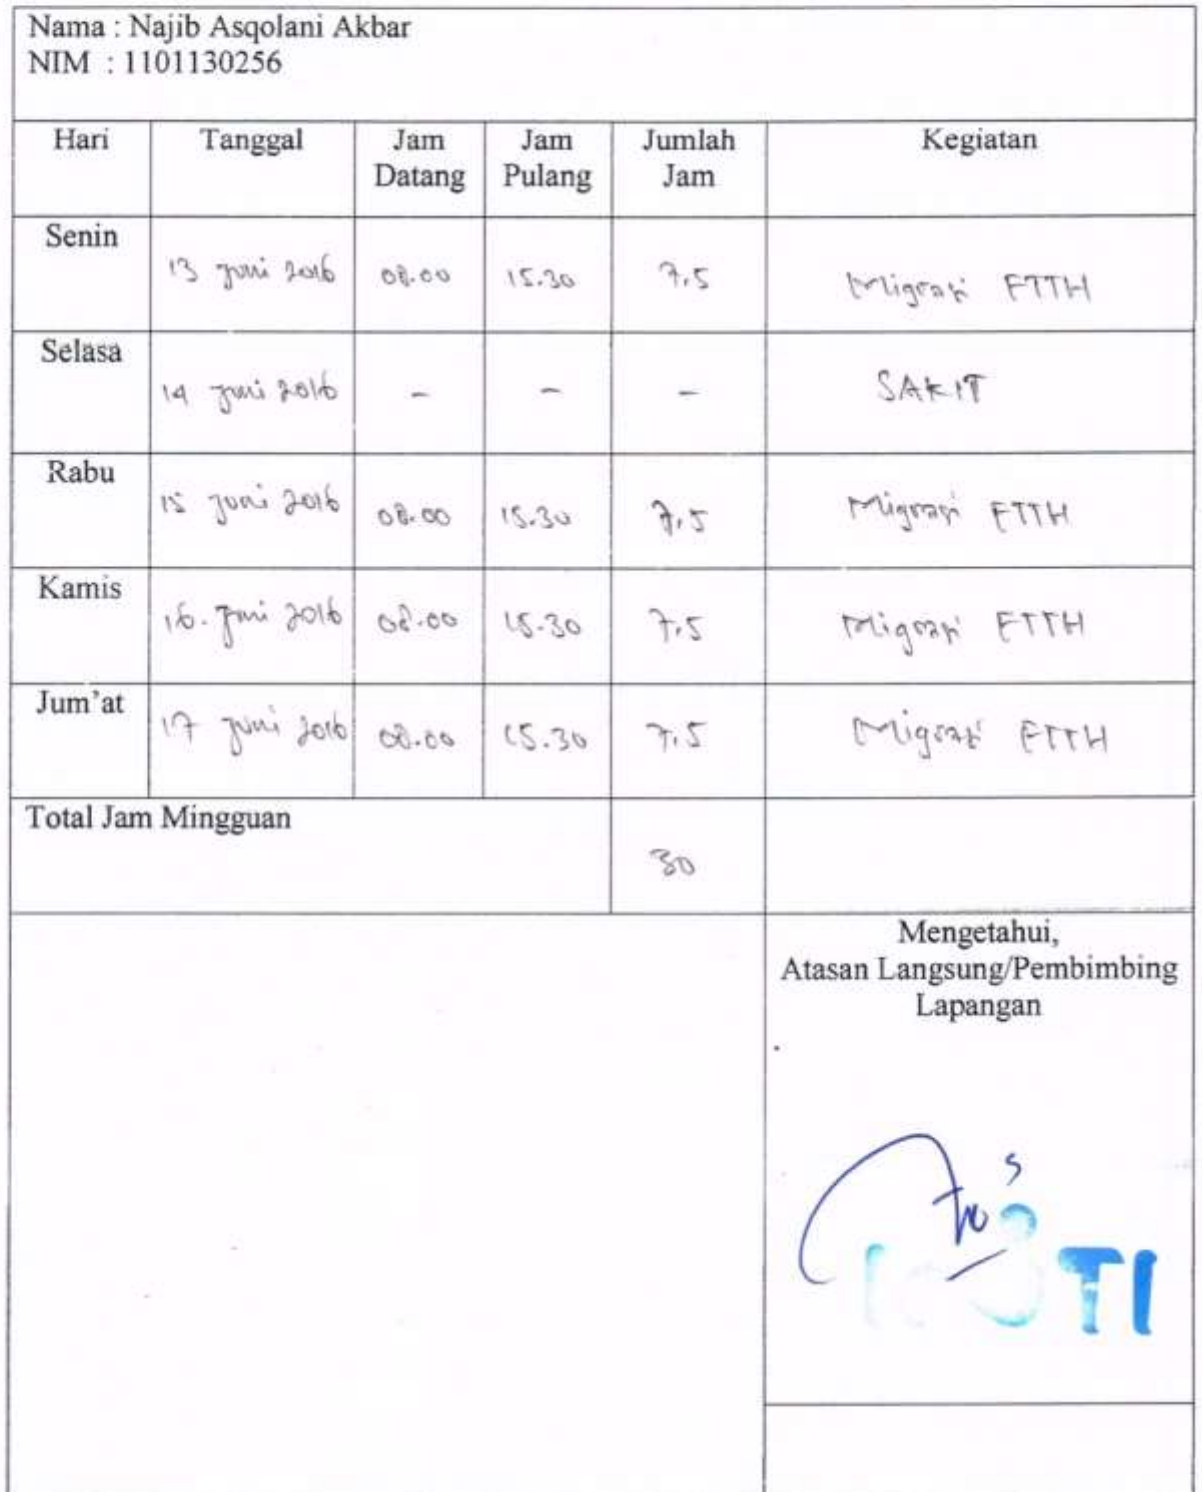 Nama : Najib Asqolani Akbar
NIM : 1101130256
Hari Tanggal Jam Datang Jam Pulang Jumlah Jam Kegiatan
Senin 13 Juni 2016 08.00 15.30 7.5 Migrasi FTTH
Selasa 14 Juni 2016 - - - SAKIT
Rabu 15 Juni 2016 08.00 15.30 7.5 Migrasi FTTH
Kamis 16. Juni 2016 08.00 15.30 7.5 Migrasi FTTH
Jum'at 17 Juni 2016 08.00 15.30 7.5 Migrasi FTTH
Total Jam Mingguan 30
Mengetahui,
Atasan Langsung/Pembimbing
Lapangan